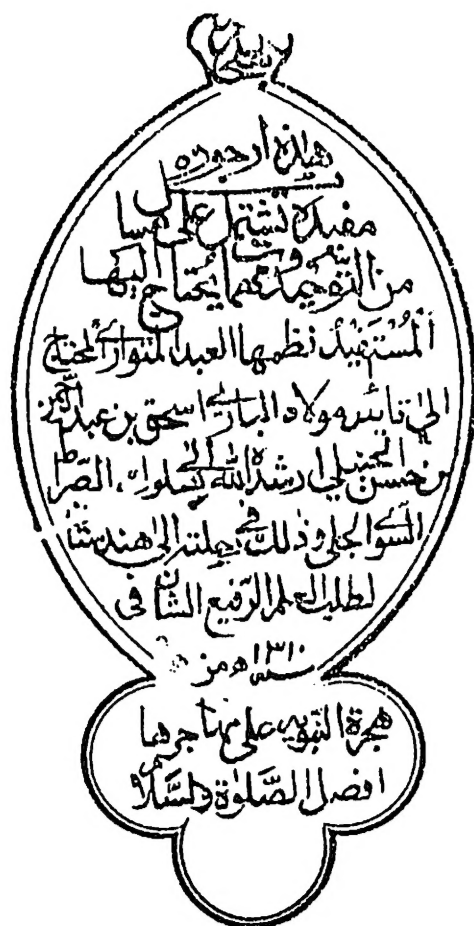 هذه ارجوزه
مفيدة تشتمل على مسا يل
من التوحيد وعمايحتاج اليها
المستفيد نظمها العبد المتواري المحتاج
الى تائيد مولاه الباري اسحق بن عبدالرحمن
بن حسن الحنبلي ارشده الله الى سلوك الصراط
السوي الجلي وذلك في رحلته الى هندستان
لطلب العلم الرفيع الشان في
سنة ١٣١٠ه من
هجرة النبويه على مهاجرها
افضل الصلوة والسلام